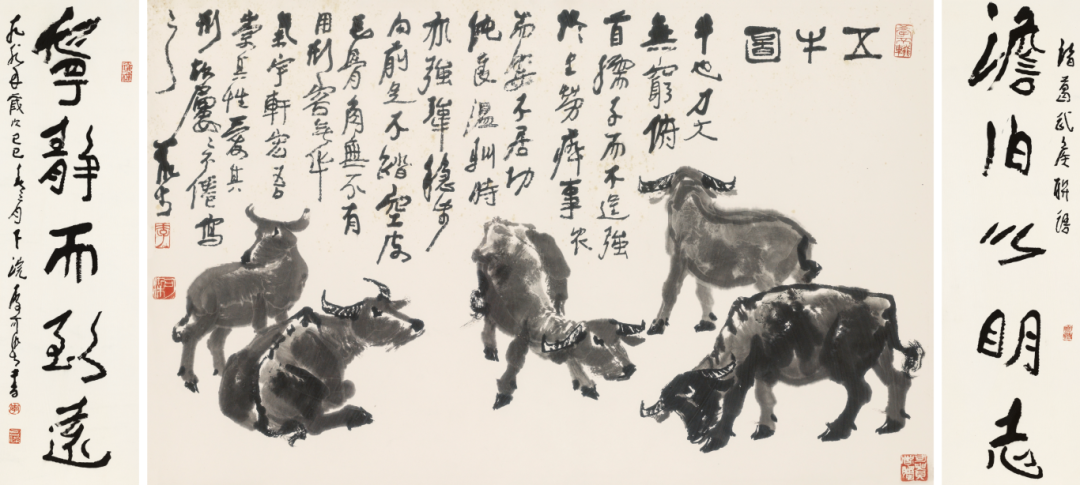 諸葛武侯聯語
澹泊以明志
五牛圖
牛也力大
無窮俯
首孺子而不逞強
終生勞瘁事農
而安不居功
純良溫馴時
亦強犟穩步
向前足不踏空皮
毛骨角無不有
用形容無華
氣宇軒宏吾
崇其性愛其
形故屢不倦寫
之
可染
寧靜而致遠
九八九年歲次己巳春三月下浣 可染書